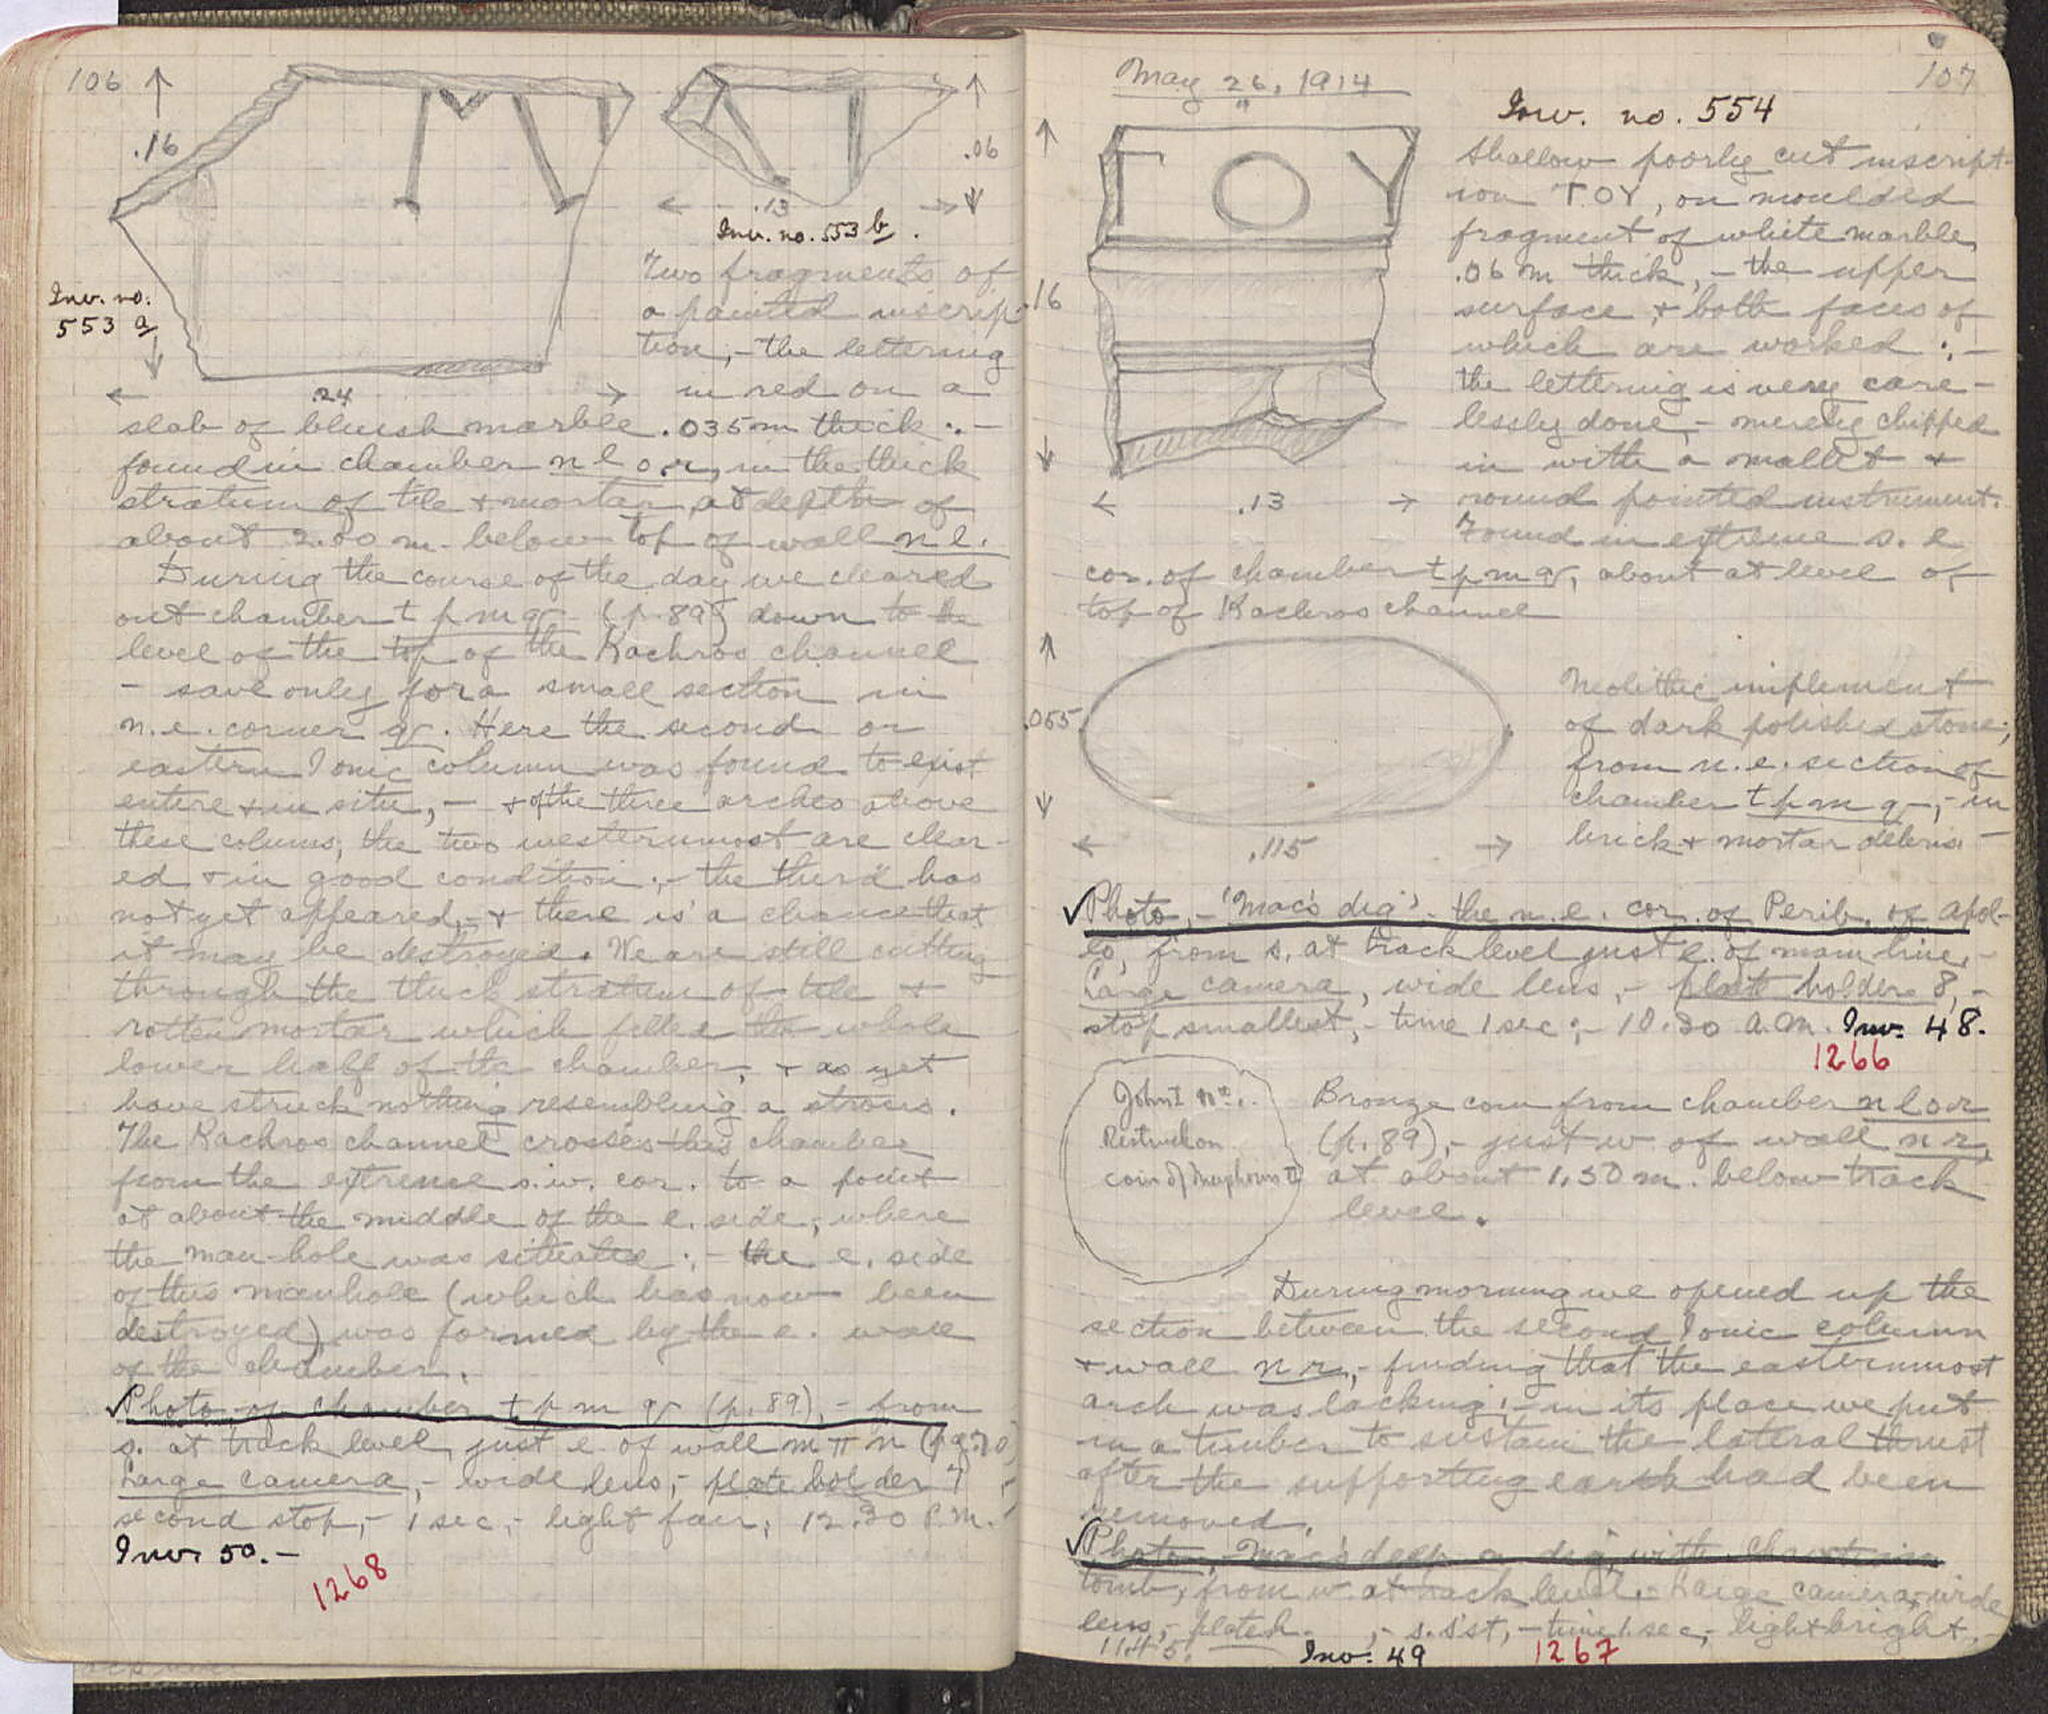 106
.16
.06
.13
Inv. no. 553 b.
Inv. no.
553 a
.24
Two fragments of
a painted inscrip-
tion,- the lettering
in red on a
slab of bluish marble .035m thick :-
found in chamber n l o r, in the thick
stratum of tile & mortar, at depth of
about 2.00 m. below top of wall n l.
During the course of the day we cleared
out chamber t p m q (p. 89) down to the
level of the top of the Kachros channel
- save only for a small section in
n.e. corner q. Here the second or
eastern Ionic column was found to exist
entire & in situ, - & of the three arches above
these colums, the two westernmost are clear-
ed & in good condition :- the third has
not yet appeared,- & there is a chance that
it may be destroyed. We are still cutting
through the thick stratum of tile &
rotten mortar which filled the whole
lower half of the chamber, & as yet
have struck nothing resembling a stros.
The Kachros channel crosses this chamber
from the extreme s.w. cor. to a point
at about the middle of the e. side, where
the man-hole was situated :- the e. side
of this manhole (which has now been
destroyed) was formed by the e. wall
of the chamber.
✓Photo of chamber t p m q (p. 89),- from
s. at track level, just e. of wall m π n (pg. 70)
Large camera,- wide lens,- plate holder 7,-
second stop,- 1 sec,- light fair, 12.30 P.M.-
Inv. 50.-
1268
107
May 26, 1914
Inv. no. 554
ΤΟΥ
.16
.13
Shallow poorly cut inscript-
ion ΤΟΥ, on moulded
fragment of white marble,
.06 m thick,- the upper
surface & both faces of
which are worked :-
the lettering is very care-
lessly done,- merely chipped
in with a mallet &
round pointed instrument.
Found in extreme s.e
cor. of chamber t p m q, about at level of
top of Kachros channel
.055
.115
Neolithic implement
of dark polished stone,
from n.e. section of
chamber t p m q,- in
brick & mortar debris.-
✓Photo,- 'Mac's dig'- the n.e. cor. of Perib. of Apol-
lo, from s. at track level just e. of main line,-
Large camera, wide lens,- plate holder 8,-
stop smallest,- time 1 sec;- 10.30 A.M. Inv. 48.
1266
John I
Restruck on
coin of Nicephorus II
Bronze coin from chamber n l o r
(p. 89),- just w. of wall n r,
at about 1.50 m. below track
level.
During morning we opened up the
section between the second Ionic column
& wall n r,- finding that the easternmost
arch was lacking;- in its place we put
in a timber to sustain the lateral thrust
after the supporting earth had been
removed.
✓Photo, Mac's deep dig, with Christian
tomb, from w. at track level.- Large camera, wide
lens,- plate h. ,- s. s'st,- time 1 sec,- light bright,-
11.45. Inv. 49 1267